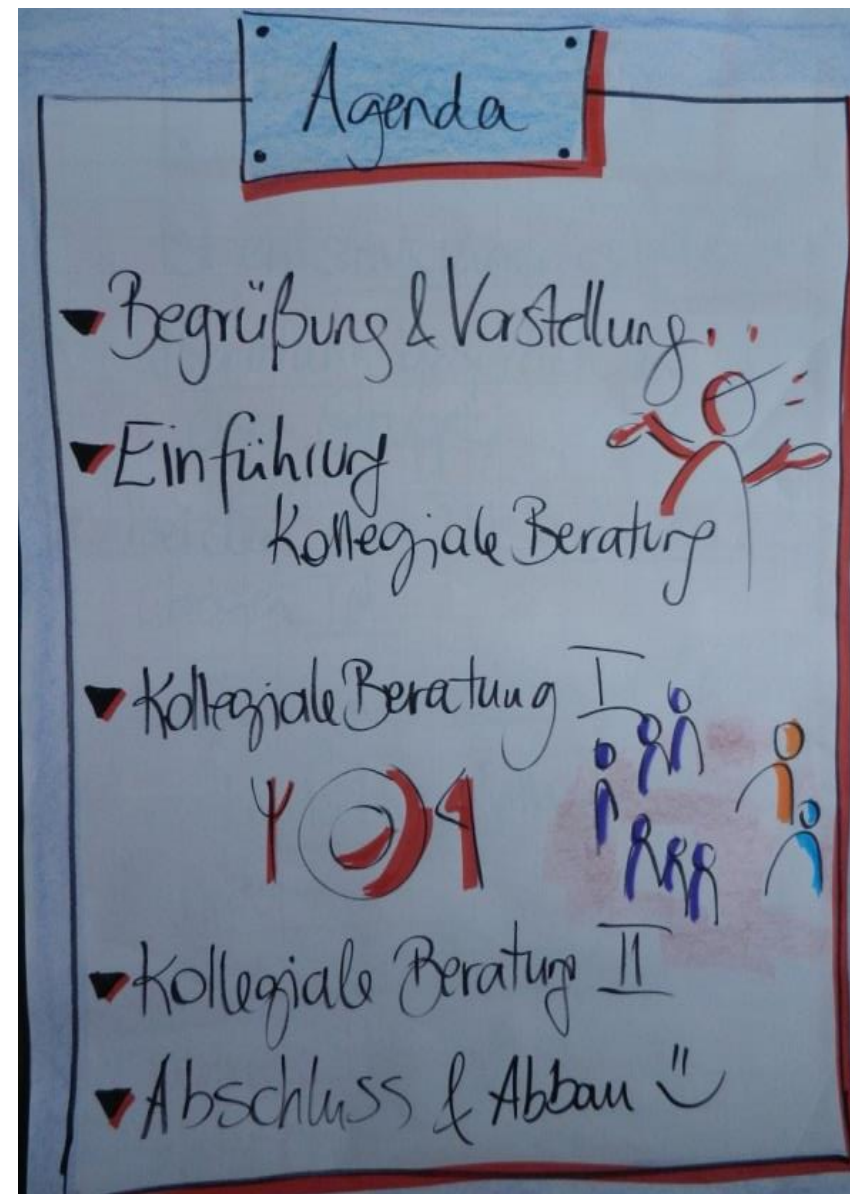 Agenda
Begrüßung & Vorstellung
Einführung
Kollegiale Beratung
Kollegiale Beratung I
Kollegiale Beratung II
Abschluss & Abbau